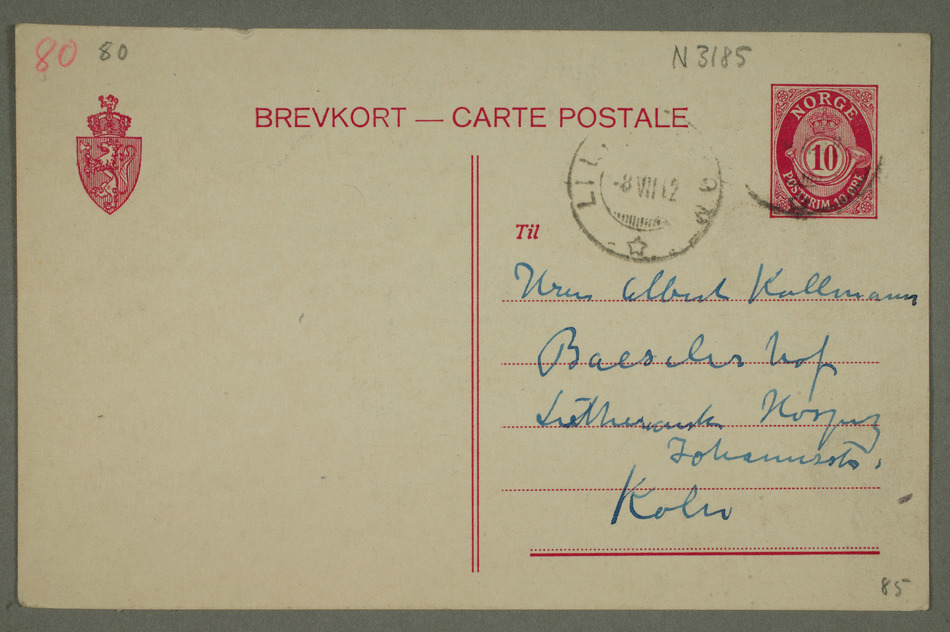 80 80
N3185
BREVKORT — CARTE POSTALE
NORGE
10
POSTFRIM. 10 ØRE
-8 VII 12
Til
Herrn Albert Kollmann
Baseler hof
Johannisstr.
Köln
85